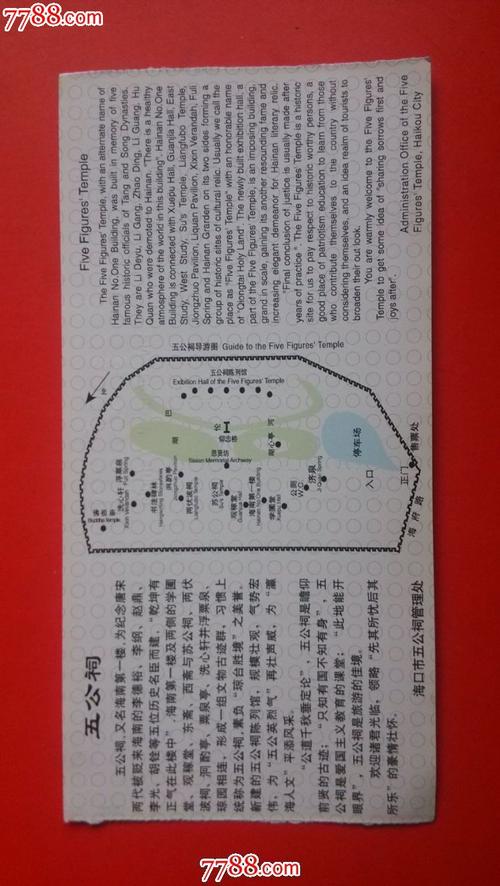 7788.com
五公祠
五公祠，又名海南第一楼，为纪念唐宋
两代被贬来海南的李德裕、李纲、赵鼎、
李光、胡铨等五位历史名臣而建，“乾坤有
正气在此楼中”。海南第一楼及两侧的学圃
堂、观稼堂、东斋、西斋与苏公祠、两伏
波祠、洞酌亭、粟泉亭、洗心轩井浮粟泉、
琼园相连，形成一组文物古迹群，习惯上
统称为五公祠，素负“琼台胜境”之美誉。
新建的五公祠陈列馆，规模壮观，气势宏
伟，为“五公英烈气”再壮声威，为“瀛
海人文”平添风采。
“公道千秋垂定论”，五公祠是瞻仰
前贤的古迹；“只知有国不知有身”，五
公祠是爱国主义教育的课堂；“此地能开
眼界”，五公祠是旅游的佳境。
欢迎诸君光临，领略“先其所忧后其
所乐”的豪情壮怀。
海口市五公祠管理处
五公祠导游图 Guide to the Five Figures' Temple
五公祠陈列馆
Exibition Hall of the Five Figures' Temple
停车场
入口
正门
售票处
海府路
洗心轩
浮粟泉
洞酌亭
两伏波祠
苏公祠
Su's Temple
观稼堂
海南第一楼
Hainan No.One Building
学圃堂
公厕
W.C
Five Figures' Temple
The Five Figures' Temple, with an alternate name of
Hainan No.One Building, was built in memory of five
famous historic officials of Tang and Song Dynasties.
They are Li Deyu, Li Gang, Zhao Ding, Li Guang, Hu
Quan who were demoted to Hainan. "There is a healthy
atmosphere of the world in this building". Hainan No.One
Building is connected with Xuepu Hall, Guanjia Hall, East
Study, West Study, Su's Temple, Liangfubo Temple,
Jiongzhuo Pavilion, Liquan Pavilion, Xixin Verandah, Fuli
Spring and Hainan Grarden on its two sides forming a
group of historic sites of cultural relic. Usually we call the
place as "Five Figures' Temple" with an honorable name
of "Qiongtai Holy Land". The newly built exhibition hall, a
part of the Five Figures' Temple, is an imposing building,
grand in scale, gaining its another resounding fame and
increasing elegant demeanor for Hainan literary relic.
"Final conclusion of justice is usually made after
years of practice ". The Five Figures' Temple is a historic
site for us to pay respect to historic worthy persons, a
good place of patriotism education to learn from those
who contribute themselves to the country without
considering themselves, and an idea realm of tourists to
broaden their out look.
You are warmly welcome to the Five Figures'
Temple to get some idea of "sharing sorrows first and
joys after".
Administration Office of the Five
Figures' Temple, Haikou City
7788.com